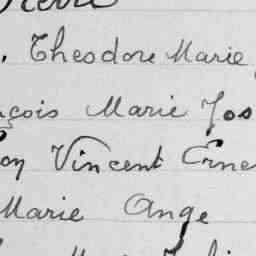 . Theodore Marie
çois Marie Jos
on Vincent Erne
Marie Ange